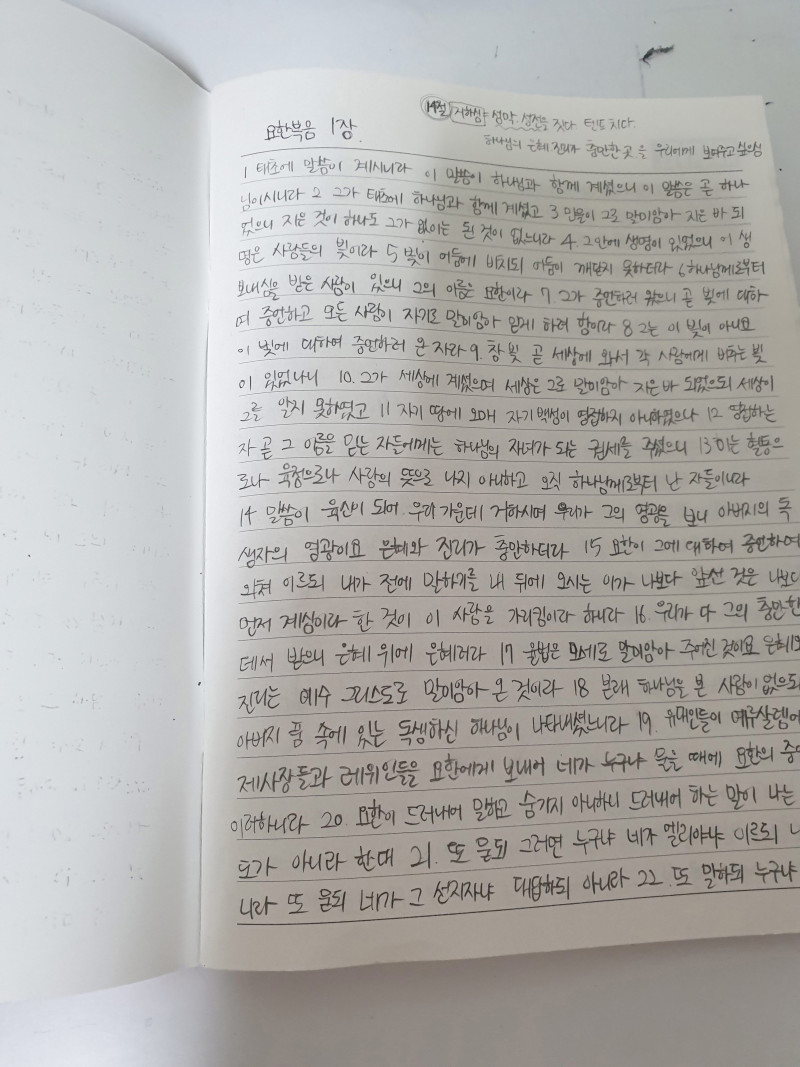 14절 거하심 성막 성전을 짓다 텐트 치다.
요한복음 1장.
하나님의 은혜 진리가 충만한 곳을 우리에게 보여주고 싶으심
1 태초에 말씀이 계시니라 이 말씀이 하나님과 함께 계셨으니 이 말씀은 곧 하나
님이시니라 2 그가 태초에 하나님과 함께 계셨고 3 만물이 그로 말미암아 지은 바 되
었으니 지은 것이 하나도 그가 없이는 된 것이 없느니라 4. 그 안에 생명이 있었으니 이 생
명은 사람들의 빛이라 5 빛이 어둠에 비치되 어둠이 깨닫지 못하더라 6 하나님께로부터
보내심을 받은 사람이 있으니 그의 이름은 요한이라 7 그가 증언하러 왔으니 곧 빛에 대하
여 증언하고 모든 사람이 자기로 말미암아 믿게 하려 함이라 8 그는 이 빛이 아니요
이 빛에 대하여 증언하러 온 자라 9. 참 빛 곧 세상에 와서 각 사람에게 비추는 빛
이 있었나니 10. 그가 세상에 계셨으며 세상은 그로 말미암아 지은 바 되었으되 세상이
그를 알지 못하였고 11 자기 땅에 오매 자기 백성이 영접하지 아니하였으나 12 영접하는
자 곧 그 이름을 믿는 자들에게는 하나님의 자녀가 되는 권세를 주셨으니 13 이는 혈통으
로나 육정으로나 사람의 뜻으로 나지 아니하고 오직 하나님께로부터 난 자들이니라
14 말씀이 육신이 되어 우리 가운데 거하시며 우리가 그의 영광을 보니 아버지의 독
생자의 영광이요 은혜와 진리가 충만하더라 15 요한이 그에 대하여 증언하여
외쳐 이르되 내가 전에 말하기를 내 뒤에 오시는 이가 나보다 앞선 것은 나보다
먼저 계심이라 한 것이 이 사람을 가리킴이라 하니라 16. 우리가 다 그의 충만한
데서 받으니 은혜 위에 은혜러라 17 율법은 모세로 말미암아 주어진 것이요 은혜와
진리는 예수 그리스도로 말미암아 온 것이라 18 본래 하나님을 본 사람이 없으되
아버지 품 속에 있는 독생하신 하나님이 나타내셨느니라 19. 유대인들이 예루살렘에
제사장들과 레위인들을 요한에게 보내어 네가 누구냐 물을 때에 요한의 증
이러하니라 20. 요한이 드러내어 말하고 숨기지 아니하니 드러내어 하는 말이 나는
도가 아니라 한대 21. 또 묻되 그러면 누구냐 네가 엘리야냐 이르되 나
니라 또 묻되 네가 그 선지자냐 대답하되 아니라 22. 또 말하되 누구냐